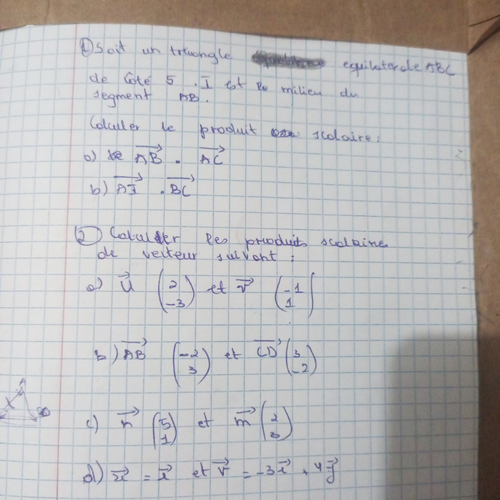 1) Soit un triangle equilaterale ABC
de Coté 5 . I est le milieu du
segment AB.
Calculer le produit scolaire :
a) AB . AC
b) AI . BC
2) Calculer les produits scolaire
de vecteur suivant :
a) U (2 -3) et v (-1 1)
b) AB (-2 3) et CD (3 -2)
c) n (5 1) et m (2 3)
d) u = i et v = -3i + 4j